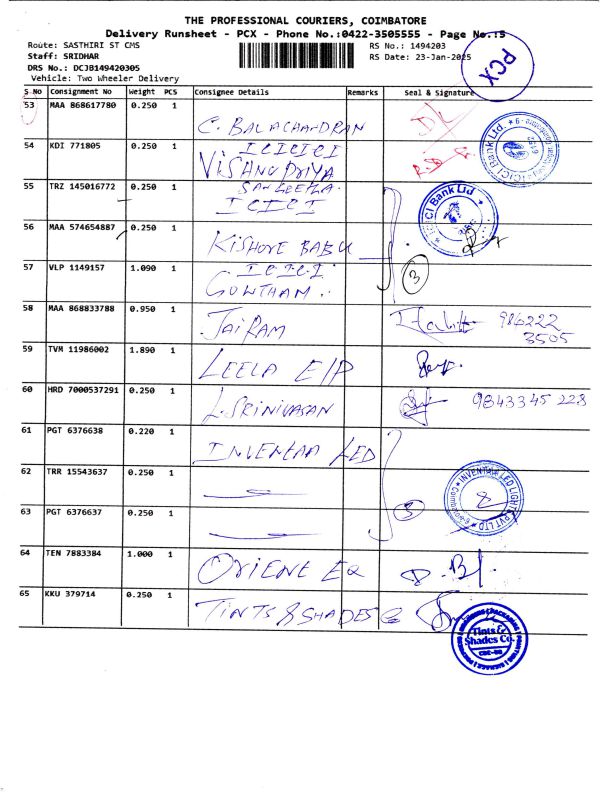 THE PROFESSIONAL COURIERS, COIMBATORE
Delivery Runsheet - PCX - Phone No.:0422-3505555 - Page No.:5
Route: SASTHIRI ST CMS RS No.: 1494203
Staff: SRIDHAR RS Date: 23-Jan-2025
DRS No.: DCJB149420305
Vehicle: Two Wheeler Delivery
PCX
S No Consignment No Weight PCS Consignee Details Remarks Seal & Signature
53 MAA 868617780 0.250 1
C. BALACHANDRAN
54 KDI 771805 0.250 1 ICICICI
VISHNU PRIYA
ICICI Bank Ltd.
55 TRZ 145016772 0.250 1 SANGEETHA.
ICICI
ICICI Bank Ltd
56 MAA 574654887 0.250 1
KISHORE BABU
57 VLP 1149157 1.090 1 ICICI
GOWTHAM.
3
58 MAA 868833788 0.950 1
JAIRAM 986222
3505
59 TVM 11986002 1.890 1
LEELA E/P
60 HRD 7000537291 0.250 1
L. SRINIVASAN 9843345 228
61 PGT 6376638 0.220 1
INVENTAA LED
62 TRR 15543637 0.250 1
INVENTAA LED LIGHTS PVT LTD
63 PGT 6376637 0.250 1
64 TEN 7883384 1.000 1
ORIENT EQ
65 KKU 379714 0.250 1
TINTS & SHADES
Tints &
Shades Co.